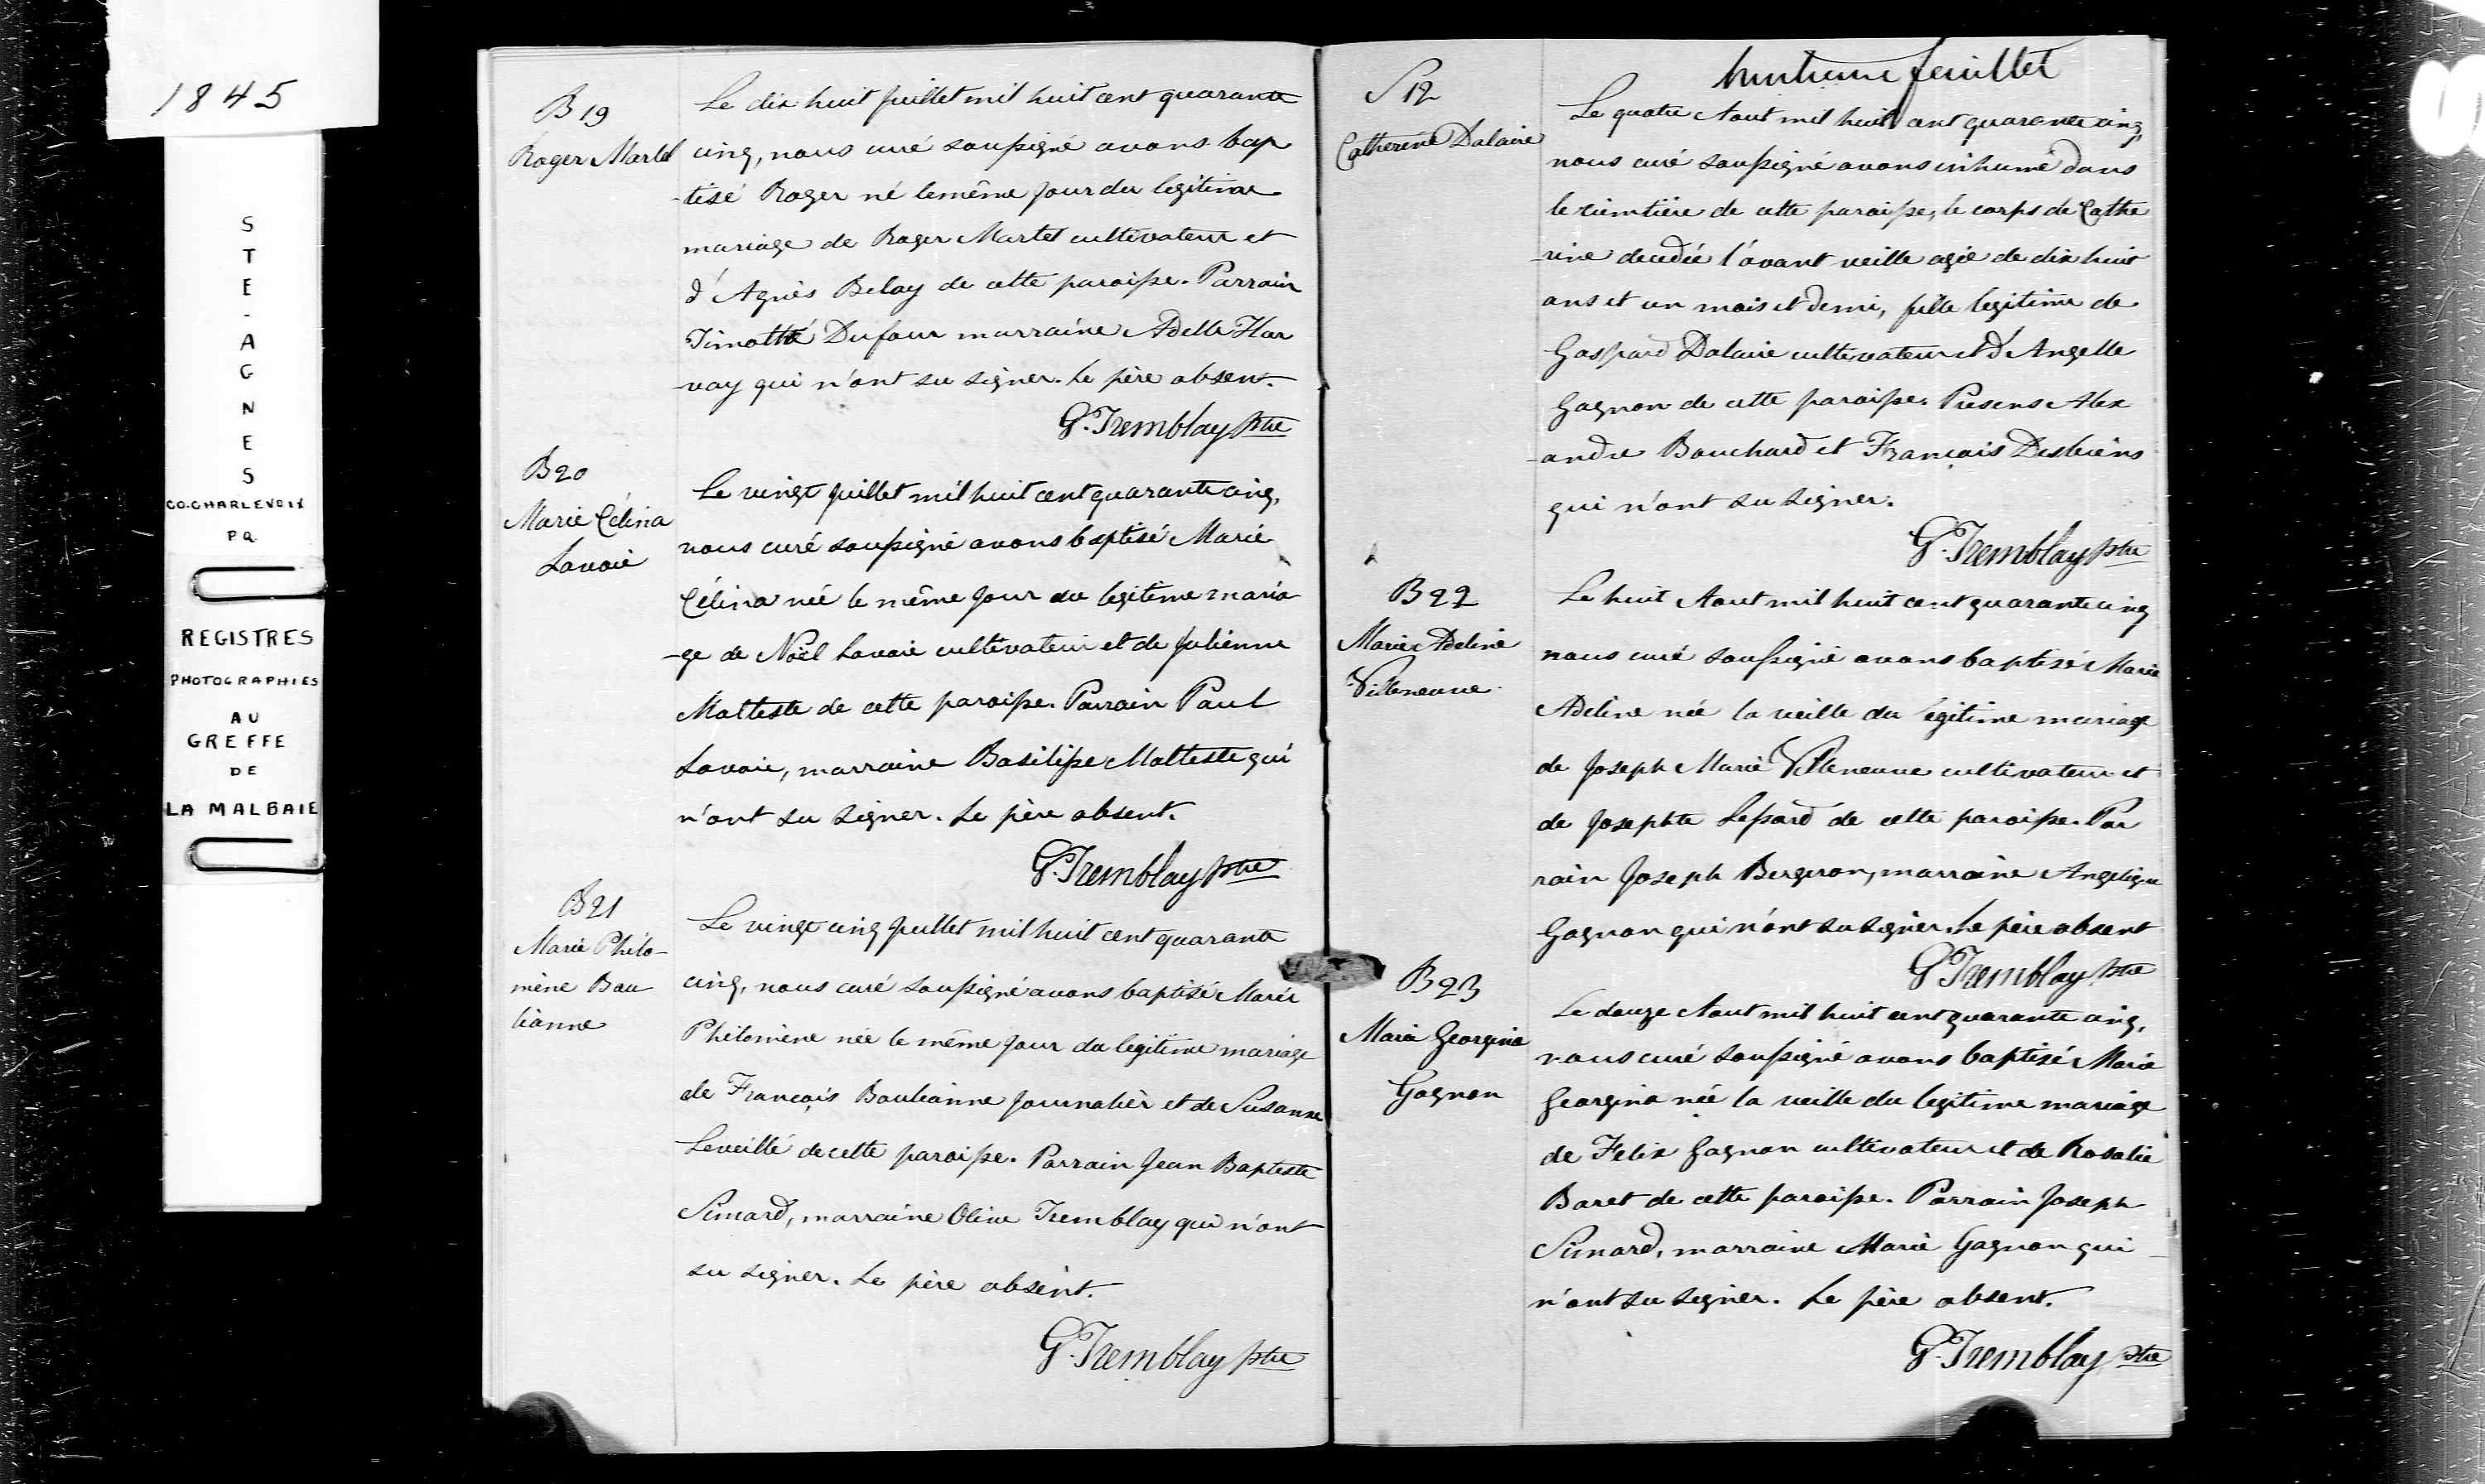 1845
STE-AGNES
CO. CHARLEVOIX
P.Q.
REGISTRES
PHOTOGRAPHIES
AU
GREFFE
DE
LA MALBAIE
B19
Roger Martel
Le dix huit juillet mil huit cent quarante
cinq, nous curé soussigné avons bap
-tisé Roger né le même jour du legitime
mariage de Roger Martel cultivateur et
d'Agnès Belay de cette paroisse. Parrain
Timothé Dufour marraine Adelle Har
-vay qui n'ont su signer. Le père absent.
G. Tremblay Ptre
B20
Marie Célina
Lavoie
Le vingt juillet mil huit cent quarante cinq,
nous curé soussigné avons baptisé Marie
Célina née le même jour du legitime maria
-ge de Noël Lavoie cultivateur et de Julienne
Malteste de cette paroisse. Parrain Paul
Lavoie, marraine Basilisse Malteste qui
n'ont su signer. Le père absent.
G. Tremblay Ptre
B21
Marie Philo-
mène Bou
lianne
Le vingt cinq juillet mil huit cent quarante
cinq, nous curé soussigné avons baptisé Marie
Philomène née le même jour du legitime mariage
de François Boulianne journalier et de Susanne
Leveillé de cette paroisse. Parrain Jean Baptiste
Simard, marraine Olive Tremblay qui n'ont
su signer. Le père absent.
G. Tremblay Ptre
huitieme feuillet
S12
Catherine Dalaire
Le quatre Aout mil huit cent quarante cinq,
nous curé soussigné avons inhumé dans
le cimtière de cette paroisse, le corps de Cathe
-rine decedée l'avant veille agée de dix huit
ans et un mois et demi, fille legitime de
Gaspard Dalaire cultivateur et d'Angelle
Gagnon de cette paroisse. Presens Alex
-andre Bouchard et François Desbiens
qui n'ont su signer.
G. Tremblay Ptre
B22
Marie Adeline
Villeneuve.
Le huit Aout mil huit cent quarante cinq
nous curé soussigné avons baptisé Marie
Adeline née la veille du legitime mariage
de Joseph Marie Villeneuve cultivateur et
de Josephte Lessard de cette paroisse. Par
rain Joseph Bergeron, marraine Angelique
Gagnon qui n'ont su signer. Le père absent
G. Tremblay Ptre
B23
Marie Georgina
Gagnon
Le douze Aout mil huit cent quarante cinq,
nous curé soussigné avons baptisé Marie
Georgina née la veille du legitime mariage
de Felix Gagnon cultivateur et de Rosalie
Baret de cette paroisse. Parrain Joseph
Simard, marraine Marie Gagnon qui
n'ont su signer. Le père absent.
G. Tremblay Ptre